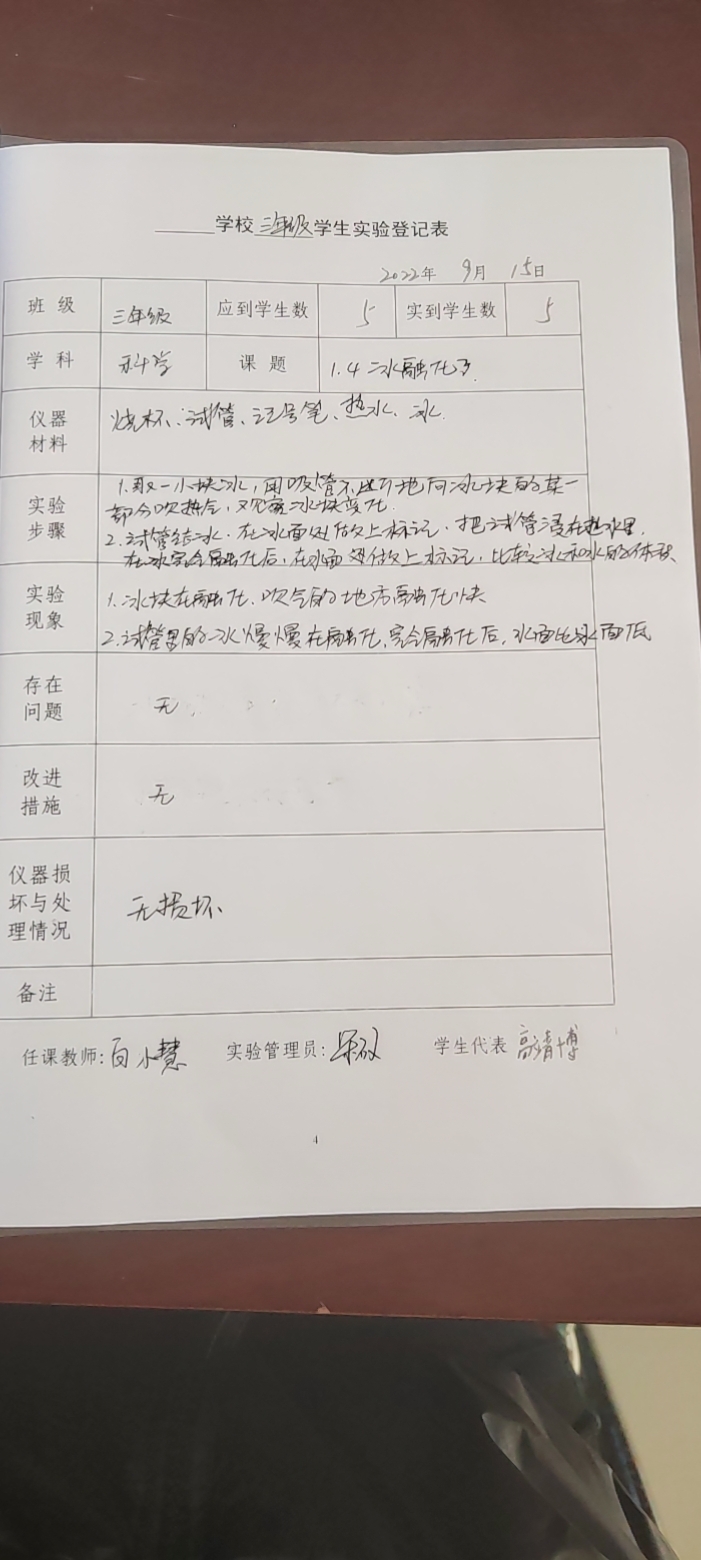 ______学校三年级学生实验登记表
2022年 9月 15日
班 级 三年级 应到学生数 5 实到学生数 5
学 科 科学 课 题 1.4 冰融化了
仪器材料 烧杯、试管、记号笔、热水、冰
实验步骤 1.取一小块冰,用吸管不断地向冰块的某一
部分吹热气,观察冰块变化.
2.试管结冰.在冰面处做上标记,把试管浸在热水里.
在冰完全融化后,在水面处做上标记,比较冰和水的体积
实验现象 1.冰块在融化.吹气的地方融化快
2.试管里的冰慢慢在融化,完全融化后,水面比冰面低
存在问题 无.
改进措施 无
仪器损坏与处理情况 无损坏
备注
任课教师:白小慧 实验管理员: 学生代表 高靖博
4